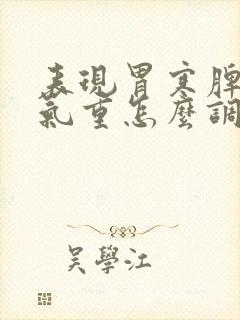 表現胃寒脾
氣重怎麼調
吳學江